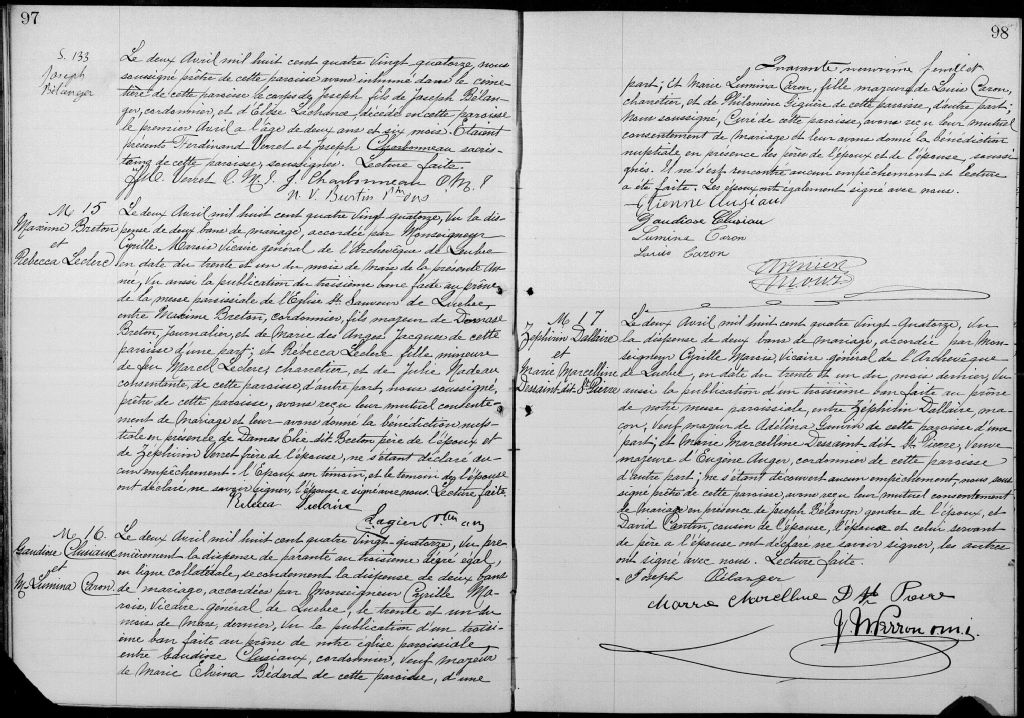 97
S. 133
Joseph
Bélanger
Le deux Avril mil huit cent quatre vingt-quatorze, nous
soussigné prêtre de cette paroisse avons inhumé dans le cime-
tière de cette paroisse le corps de Joseph fils de Joseph Bélan-
ger, cordonnier, et d'Elise Lachance, décédé en cette paroisse
le premier Avril a l'âge de deux ans et six mois. Etaient
présents Ferdinand Verret et Joseph Charbonneau sacris-
tains de cette paroisse, soussignés. Lecture faite.
Verret O. M. I. J. Charbonneau O M I
M 15
Maxime Breton
et
Rebecca Leclerc
Le deux Avril mil huit cent quatre vingt-quatorze, Vu la dis-
pense de deux bans de mariage, accordée par Monseigneur
Cyrille Marois Vicaire général de l'Archevêque de Québec
en date du trente et un du mois de Mars de la présente an-
née, Vu aussi la publication du troisième banc faite au prône
de la messe paroissiale de l'Eglise St. Sauveur de Quebec,
entre Maxime Breton, cordonnier, fils majeur de Damase
Breton, Journalier, et de Marie des Anges Jacques de cette
paroisse d'une part; et Rebecca Leclerc fille mineure
de feu Marcel Leclerc, charretier, et de Julie Nadeau
consentante, de cette paroisse, d'autre part, nous soussigné,
prêtre de cette paroisse, avons reçu leur mutuel consente-
ment de mariage et leur avons donné la bénédiction nup-
tiale en présence de Damas Elie dit Breton frère de l'époux et
de Zéphirin Verret frère de l'épouse, ne s'étant déclaré au-
cun empêchement. L'Epoux son témoin, et le témoin de l'épouse
ont déclaré ne savoir signer, l'épouse a signé avec nous. Lecture faite.
Rebecca
Lagier ptre omi
M 16
Gaudiose Clusiaux
et
M. Lumina Caron
Le deux Avril mil huit cent quatre vingt-quatorze, Vu pre-
mièrement la dispense de parenté au troisième degré égal,
en ligne collatérale, secondement la dispense de deux bans
de mariage, accordées par Monseigneur Cyrille Ma-
rois, Vicaire-général de Quebec, le trente et un du
mois de Mars, dernier, Vu la publication d'un troisi-
ème ban faite au prône de notre église paroissiale
entre Gaudiose Clusiaux, cordonnier, Veuf majeur
de Marie Elmina Bédard de cette paroisse, d'une
98
Quarante neuvième feuillet
part; Et Marie Lumina Caron, fille majeure de Louis Caron,
charretier, et de Philomène Giguère de cette paroisse, d'autre part;
Nous soussigné, Curé de cette paroisse, avons reçu leur mutuel
consentement de mariage et leur avons donné la bénédiction
nuptiale en présence des pères de l'époux et de l'épouse, soussi-
gnés. Il ne s'est rencontré aucun empêchement et lecture
a été faite. Les époux ont également signé avec nous.
Etienne Clusiau
Gaudiose Clusiau
Lumina Caron
Caron
M 17
Zéphirin Dallaire
et
Marie Marcelline
Dessaint dit St Pierre
Le deux Avril mil huit cent quatre Vingt-Quatorze, Vu
la dispense de deux bans de mariage, accordée par Mon-
seigneur Cyrille Marois, Vicaire général de l'Archevêque
de Quebec, en date du trente et un du mois dernier, Vu
aussi la publication d'un troisième ban faite au prône
de notre messe paroissiale, entre Zéphirin Dallaire, ma-
çon, Veuf majeur de Adelina Genois de cette paroisse d'une
part; et Marie Marcelline Dessaint dit St. Pierre, Veuve
majeure d'Eugène Auger, cordonnier de cette paroisse
d'autre part; ne s'étant découvert aucun empêchement, nous, sous-
signé prêtre de cette paroisse, avons reçu leur mutuel consentement
de mariage en présence de Joseph Bélanger gendre de l'époux, et
David Cantin, cousin de l'épouse, l'épouse et celui servant
de père a l'épouse ont déclaré ne savoir signer, les autres
ont signé avec nous. Lecture faite.
Joseph Bélanger
Marre Marcelline D St Pierre
Perron o.m.i.